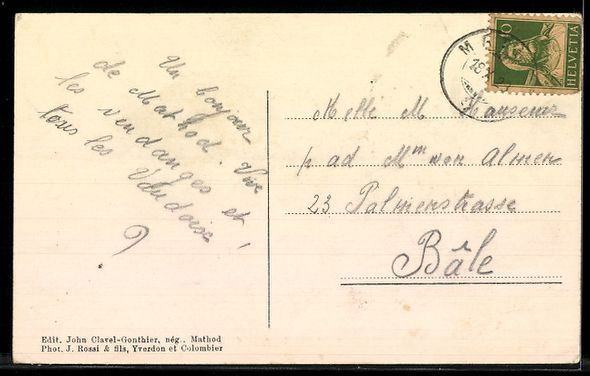 Un bonjour
de Mathod. Vive
les vendanges et
tous les Vaudois
?
Melle M
p ad Mm von Almen
23 Palmenstrasse
Bâle
10
HELVETIA
Edit. John Clavel-Gonthier, nég., Mathod
Phot. J. Rossi & fils, Yverdon et Colombier